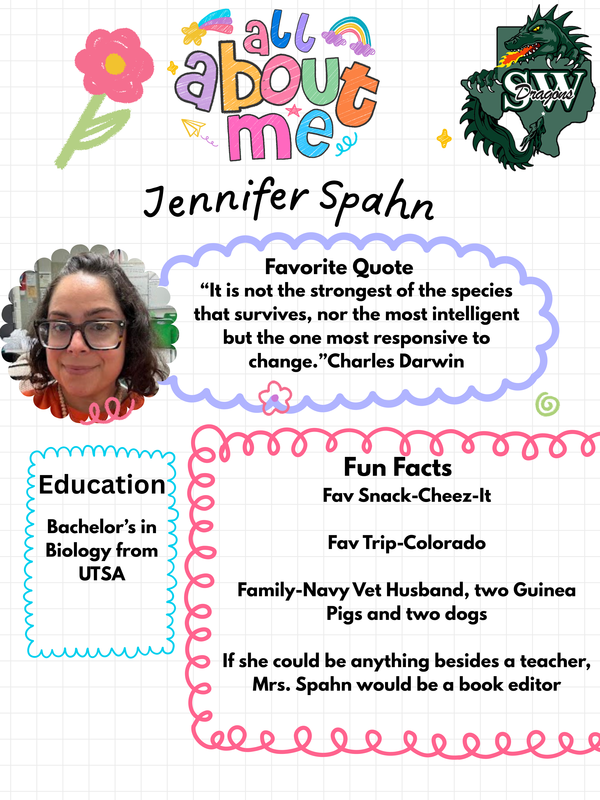 all
about
me
SW
Dragons
Jennifer Spahn
Favorite Quote
“It is not the strongest of the species
that survives, nor the most intelligent
but the one most responsive to
change.”Charles Darwin
Education
Bachelor’s in
Biology from
UTSA
Fun Facts
Fav Snack-Cheez-It
Fav Trip-Colorado
Family-Navy Vet Husband, two Guinea
Pigs and two dogs
If she could be anything besides a teacher,
Mrs. Spahn would be a book editor